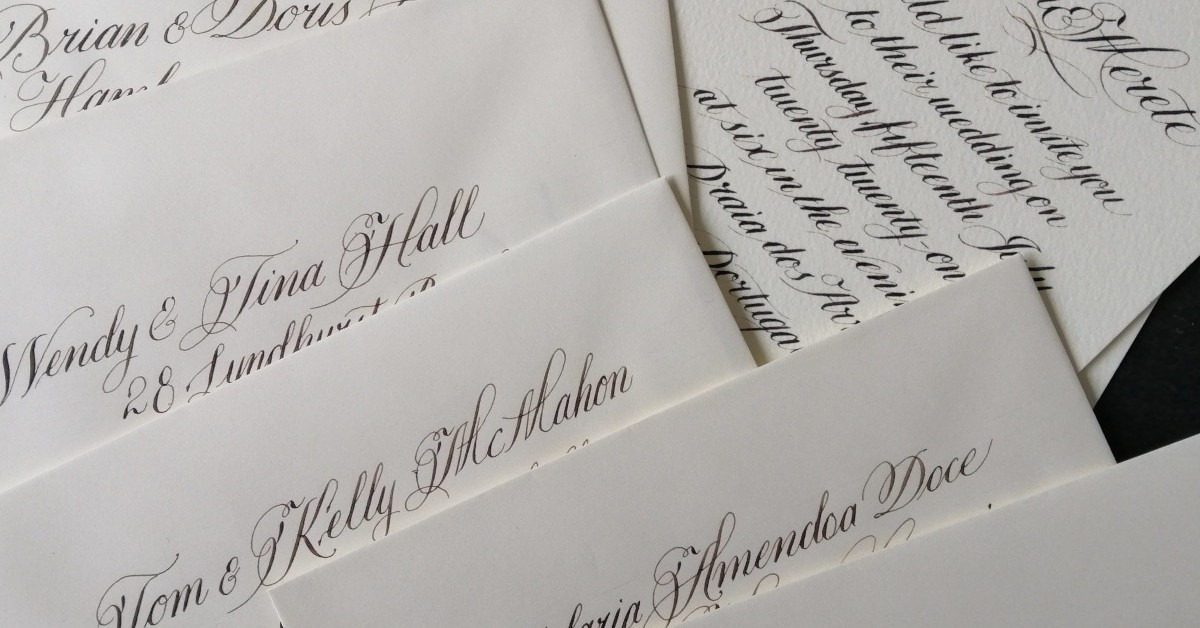 Brian & Doris
Wendy & Tina Hall
28 Lundhurst
Tom & Kelly McMahon
Amendoa Doce
& Merete
like to invite you
to their wedding on
Thursday, fifteenth July
twenty twenty-on
at six in the eveni
Praia dos
Portuga